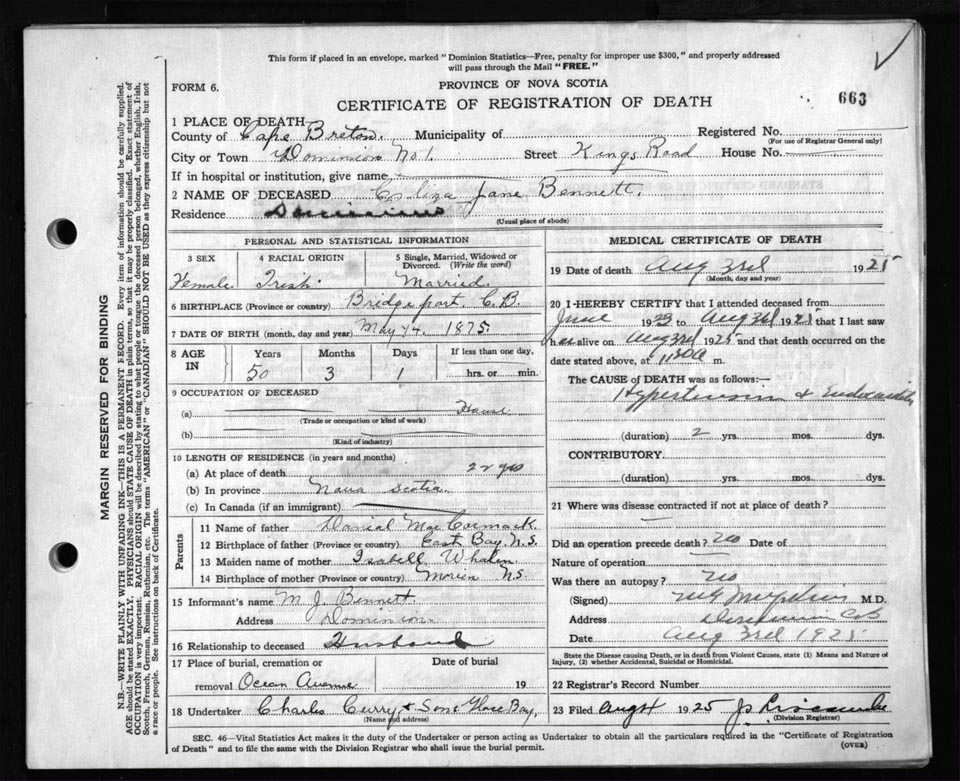 This form if placed in an envelope, marked "Dominion Statistics—Free, penalty for improper use $300," and properly addressed
will pass through the Mail "FREE."
FORM 6.
PROVINCE OF NOVA SCOTIA
CERTIFICATE OF REGISTRATION OF DEATH
663
1 PLACE OF DEATH
County of Cape Breton. Municipality of
Registered No.
(For use of Registrar General only)
City or Town Dominion No 1. Street Kings Road House No.
If in hospital or institution, give name
2 NAME OF DECEASED Eliza Jane Bennett.
Residence Dominion
(Usual place of abode)
PERSONAL AND STATISTICAL INFORMATION
3 SEX 4 RACIAL ORIGIN 5 Single, Married, Widowed or
Divorced. (Write the word)
Female Irish Married.
6 BIRTHPLACE (Province or country) Bridgeport C.B.
7 DATE OF BIRTH (month, day and year) May 1875.
8 AGE IN Years Months Days If less than one day.
50 3 1 hrs. or min.
9 OCCUPATION OF DECEASED
(a) House
(Trade or occupation or kind of work)
(b)
(Kind of industry)
10 LENGTH OF RESIDENCE (in years and months)
(a) At place of death 22 yrs
(b) In province Nova Scotia
(c) In Canada (if an immigrant)
Parents
11 Name of father Danial MacCormack.
12 Birthplace of father (Province or country) East Bay N.S.
13 Maiden name of mother Isabell Whalen
14 Birthplace of mother (Province or country) Morien N.S.
15 Informant's name M. J. Bennett.
Address Dominion.
16 Relationship to deceased Husband
17 Place of burial, cremation or Date of burial
removal Ocean Avenue 19
18 Undertaker Charles Curry & Son Glace Bay,
(Name and address)
MEDICAL CERTIFICATE OF DEATH
19 Date of death Aug 3rd 1925
(Month, day and year)
20 I HEREBY CERTIFY that I attended deceased from
June 1923 to Aug 3rd 1925 that I last saw
her alive on Aug 3rd 1925 and that death occurred on the
date stated above, at m.
The CAUSE of DEATH was as follows:—
Hypertension & Endocarditis
(duration) 2 yrs. mos. dys.
CONTRIBUTORY
(duration) yrs. mos. dys.
21 Where was disease contracted if not at place of death?
Did an operation precede death? no Date of
Nature of operation
Was there an autopsy? no
(Signed) M.D.
Address Dominion CB
Date Aug 3rd 1925
State the Disease causing Death, or in death from Violent Causes, state (1) Means and Nature of
Injury, (2) whether Accidental, Suicidal or Homicidal.
22 Registrar's Record Number
23 Filed Aug 4 1925
(Division Registrar)
SEC. 46—Vital Statistics Act makes it the duty of the Undertaker or person acting as Undertaker to obtain all the particulars required in the "Certificate of Registration
of Death" and to file the same with the Division Registrar who shall issue the burial permit.
(OVER)
MARGIN RESERVED FOR BINDING
N.B.—WRITE PLAINLY WITH UNFADING INK—THIS IS A PERMANENT RECORD. Every item of information should be carefully supplied.
AGE should be stated EXACTLY. PHYSICIANS should STATE CAUSE OF DEATH in plain terms, so that it may be properly classified. Exact statement of
OCCUPATION is very important. RACIAL ORIGIN will be described by stating to what people or tongue the deceased person belonged, whether English, Irish,
Scotch, French, German, Russian, Ruthenian, etc. The terms "AMERICAN" or "CANADIAN" SHOULD NOT BE USED as they express citizenship but not
a race or people. See instructions on back of Certificate.